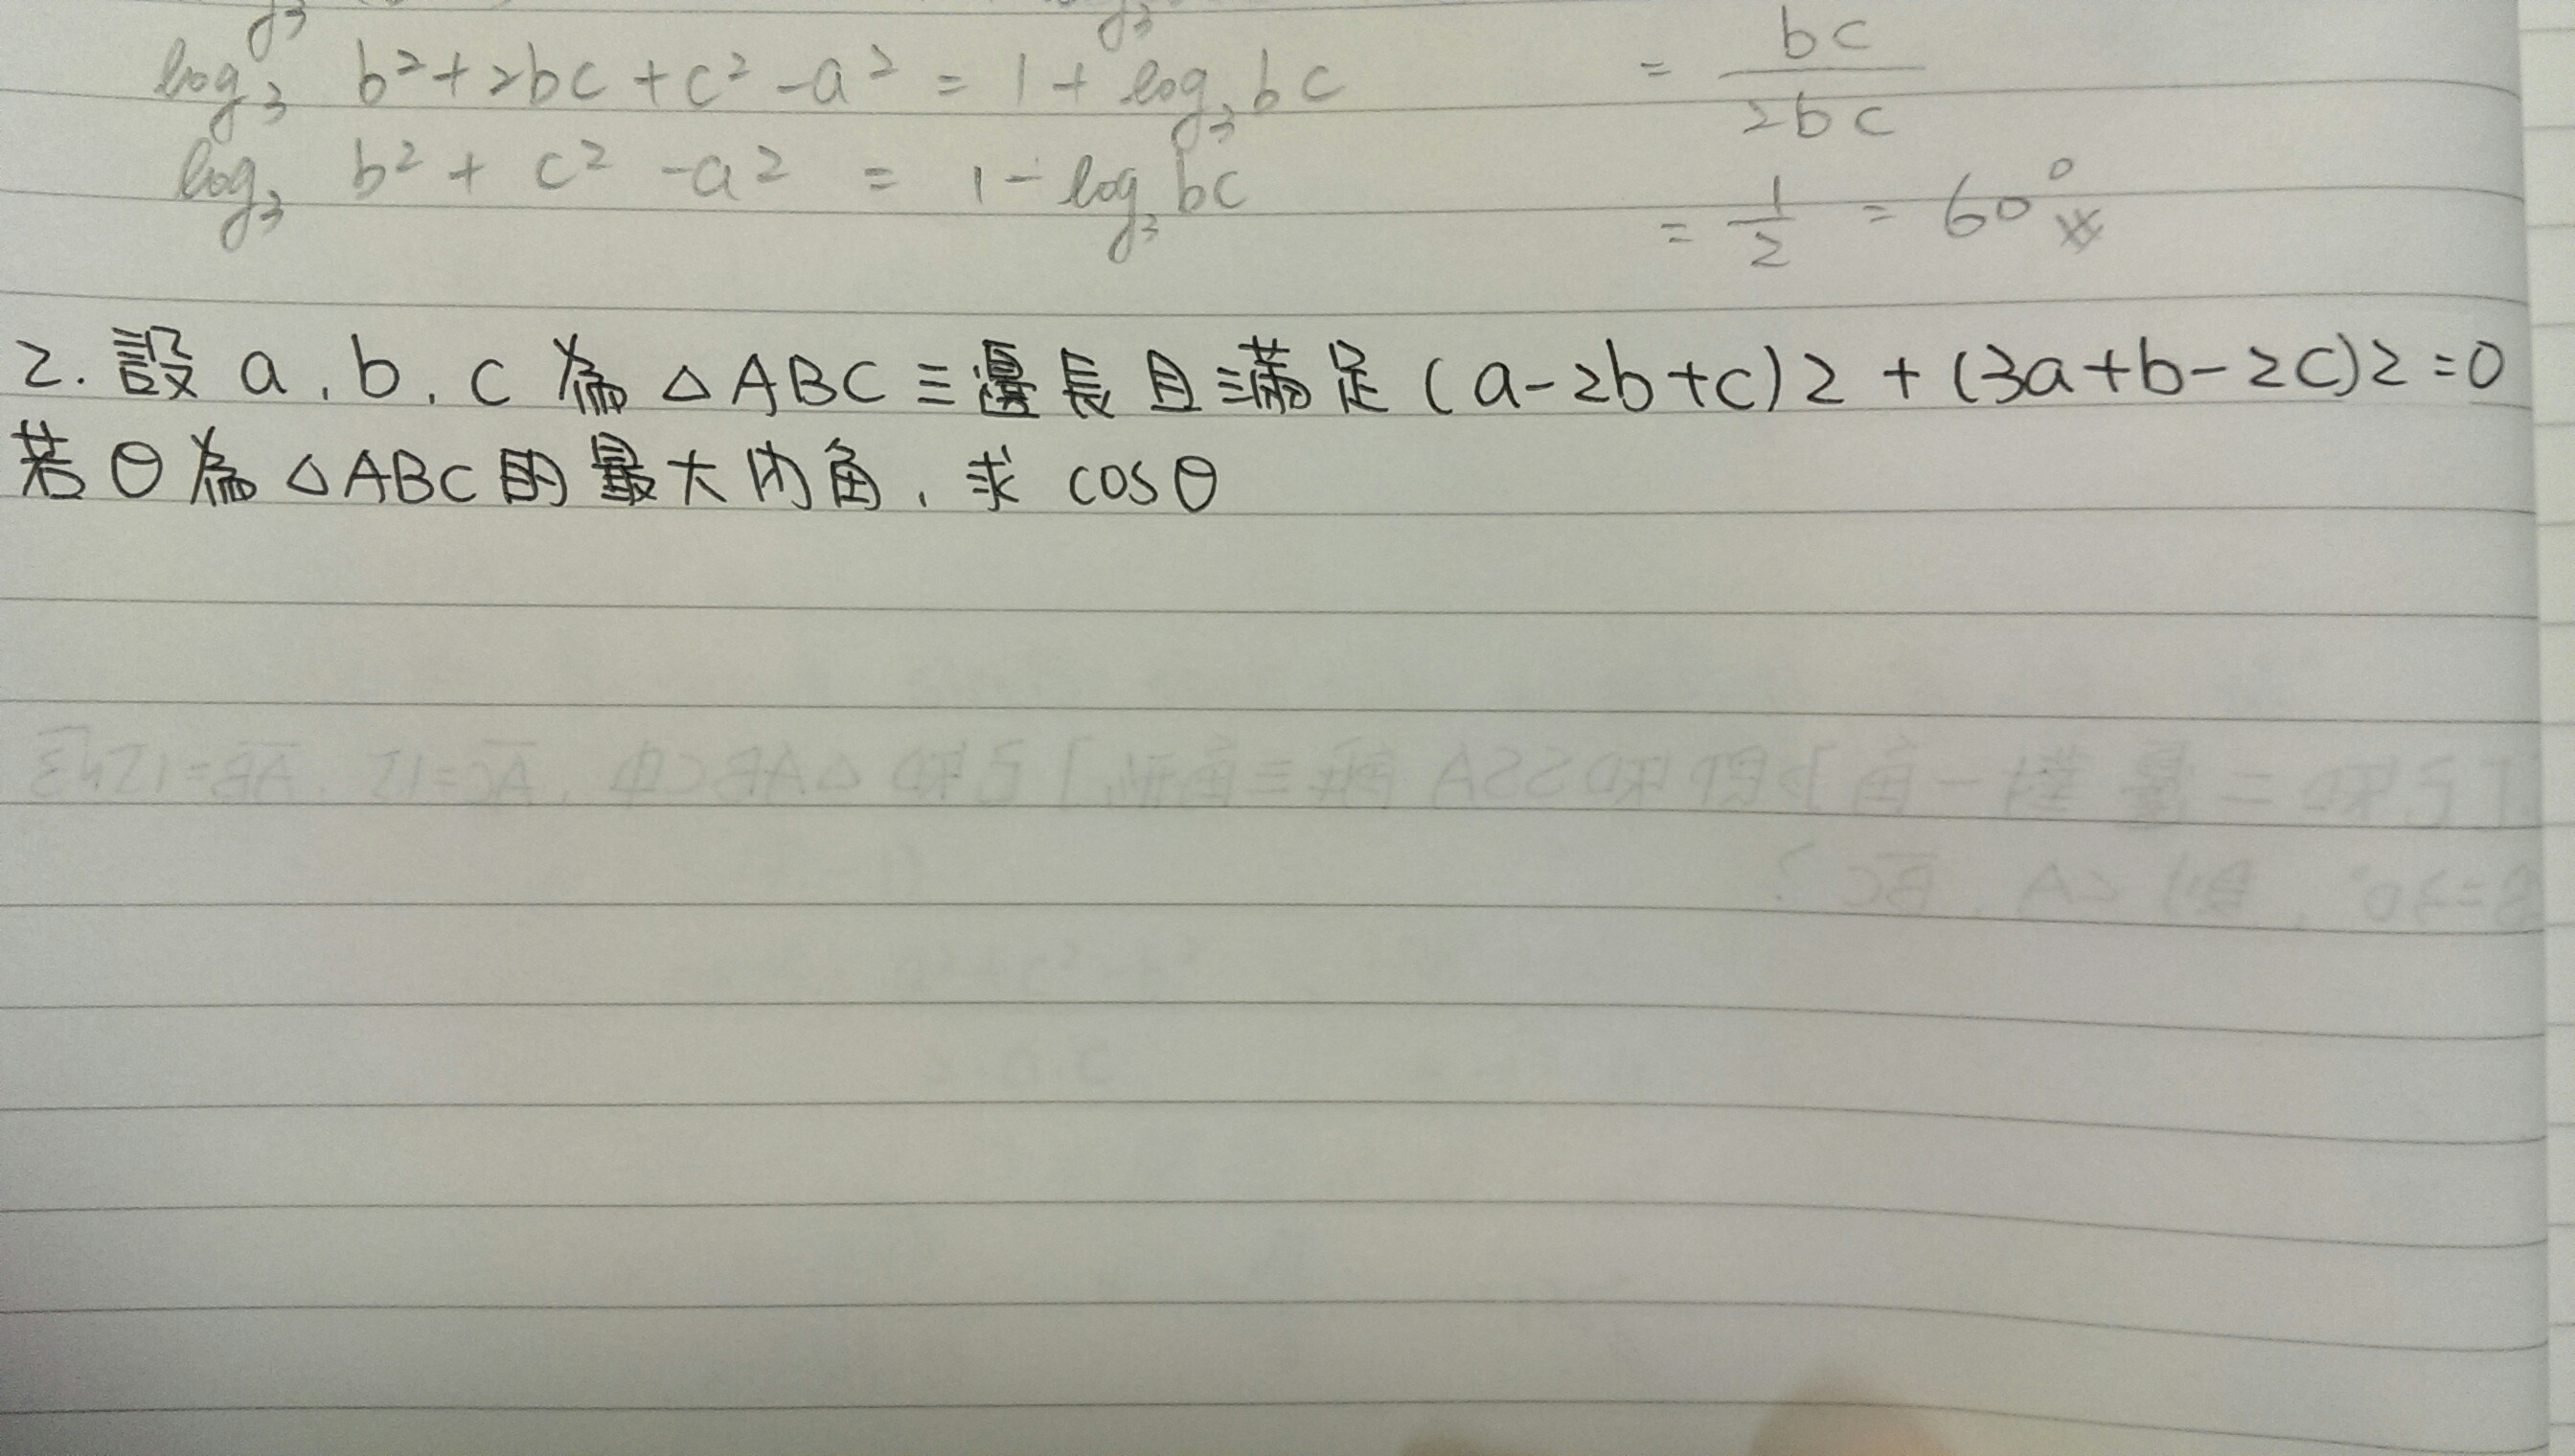 log₃ b²+2bc+c²-a² = 1+log₃bc = bc/2bc
log₃ b²+c²-a² = 1-log₃bc = 1/2 = 60°
2.設a,b,c為△ABC三邊長且滿足(a-2b+c)2+(3a+b-2c)2=0
若θ為△ABC的最大內角,求cosθ